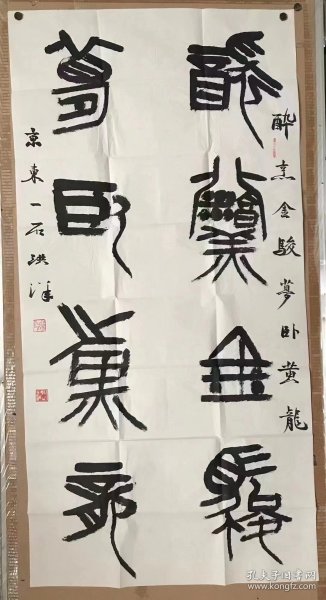 醉烹金駿夢卧黄龍
醉烹金駿
夢卧黄龍
京東一石洪洋
孔夫子旧书网
www.kongfz.com